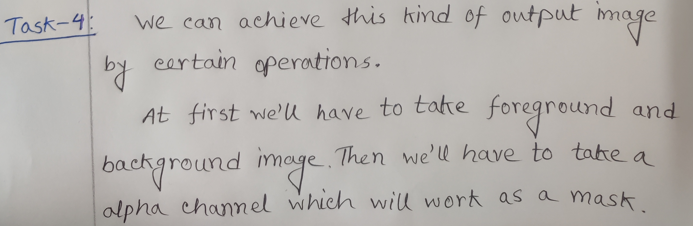 Task-4: We can achieve this kind of output image
by certain operations.
At first we'll have to take foreground and
background image. Then we'll have to take a
alpha channel which will work as a mask.